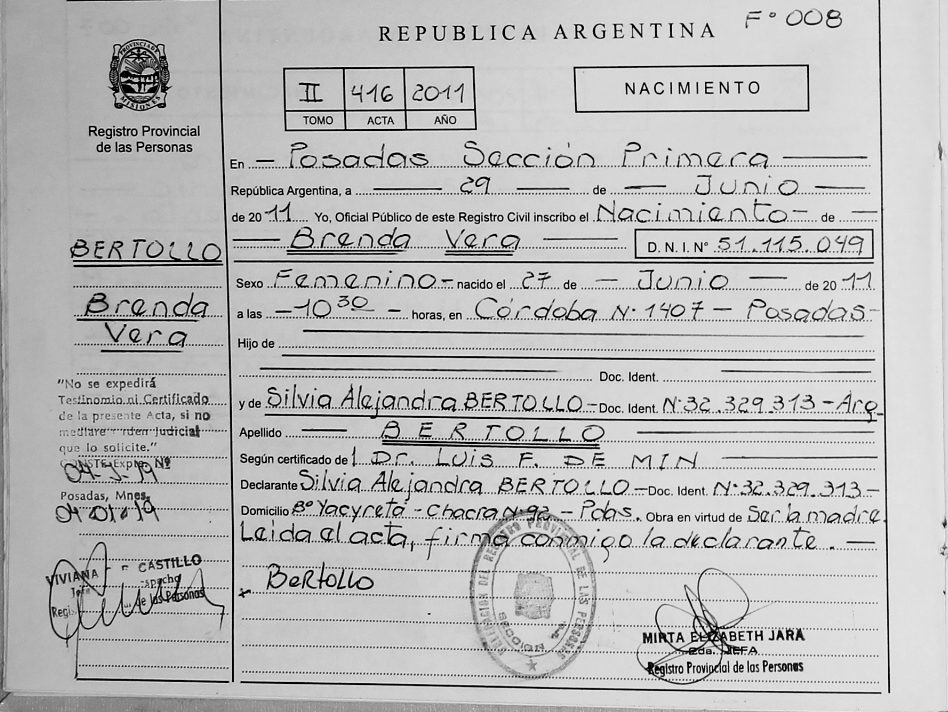 F° 008
REPUBLICA ARGENTINA
PROVINCIA DE MISIONES
Registro Provincial
de las Personas
II 416 2011
TOMO ACTA AÑO
NACIMIENTO
En — Posadas Sección Primera —
República Argentina, a — 29 — de — Junio —
de 2011 Yo, Oficial Público de este Registro Civil inscribo el Nacimiento — de —
— Brenda Vera — D. N. I. N° 51.115.049
Sexo Femenino — nacido el 27 de — Junio — de 2011
a las — 10 30 — horas, en Córdoba N° 1407 — Posadas —
Hijo de
Doc. Ident.
y de Silvia Alejandra BERTOLLO — Doc. Ident. N° 32.329.313 — Arg.
Apellido — BERTOLLO
Según certificado de l Dr. LUIS F. DE MIN
Declarante Silvia Alejandra BERTOLLO — Doc. Ident. N° 32.329.313 —
Domicilio B° Yacyretá — Chacra N° 92 — Pdas. Obra en virtud de Ser la madre.
Leida el acta, firma conmigo la declarante. —
x Bertollo
BERTOLLO
Brenda
Vera
"No se expedirá
Testimonio ni Certificado
de la presente Acta, si no
mediare orden Judicial
que lo solicite."
CONSTE Expte. Nº
Posadas, Mnes.
VIVIANA CASTILLO
de las Personas
DELEGACION DEL REGISTRO PROVINCIAL DE LAS PERSONAS
SECCION
MIRTA ELIZABETH JARA
2da. JEFA
Registro Provincial de las Personas